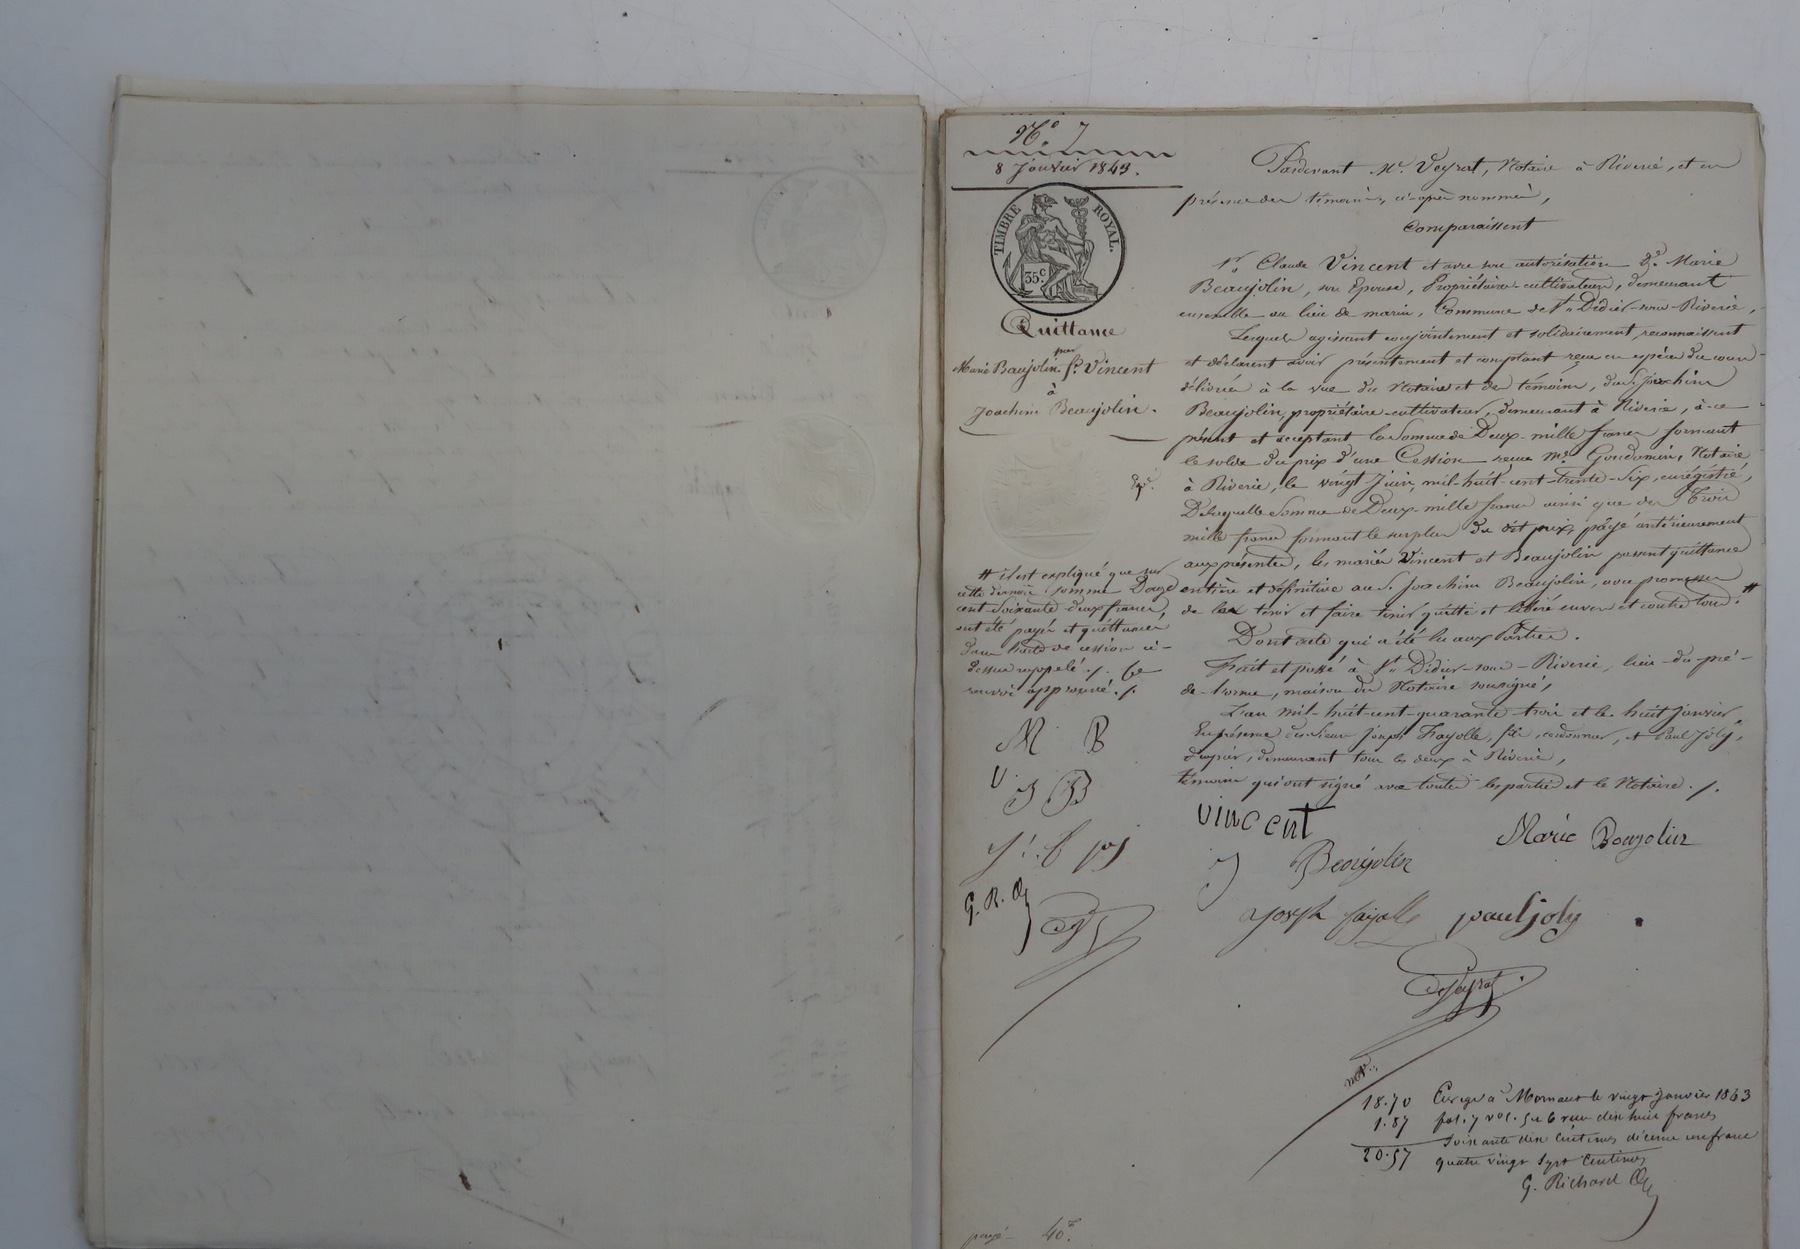 N.° 7
8 Janvier 1843.
TIMBRE ROYAL.
35.c
Quittance
par
Marie Baujolin f.e Vincent
à
Joachim Beaujolin.
Exp.
# il est expliqué que sur
cette dernière somme Douze
cent soixante deux francs,
ont été payés et quittancés
dans l'acte de cession ci-
dessus rappelé ./. Ce
renvoi approuvé ./.
M B
V
J B
J. f pj
G. R.
Pardevant M.e Veyrat, Notaire à Riverie, et en
présence des témoins, ci-après nommés,
Comparaissent
S.r Claude Vincent et avec son autorisation D.e Marie
Beaujolin, son Epouse, Propriétaires-cultivateurs, demeurant
ensemble au lieu de marin, Commune de S.t Didier-sous-Riverie,
Lesquels agissant conjointement et solidairement, reconnaissent
et déclarent avoir présentement et comptant reçu en espèces du cours
délivrées à la vue du Notaire et des témoins, du S. Joachim
Beaujolin, propriétaire-cultivateur, demeurant à Riverie, à-ce
présent et acceptant la Somme de Deux-mille francs formant
le solde du prix d'une Cession reçue M.e Gondamin, Notaire
à Riverie, le vingt Juin, mil-huit-cent-trente-six, enrégistré,
De laquelle Somme de Deux-mille francs ainsi que des Trois
mille francs formant le surplus du dit prix, payé antérieurement
aux présentes, les mariés Vincent et Beaujolin passent quittance
entière et définitive au S. Joachim Beaujolin, avec promesse
de le tenir et faire tenir quitte et libéré envers et contre tous. #
Dont acte qui a été lu aux Parties.
Fait et passé à S.t Didier-sous-Riverie, lieu-du-pré-
de-l'orme, maison du Notaire soussigné,
L'an mil-huit-cent-quarante-trois et le huit Janvier,
En présence des sieurs Joseph Fayolle, fils, cordonnier, et Paul Joly,
drapier, demeurant tous les deux à Riverie,
témoins qui ont signé avec toutes les parties et le Notaire ./.
vincent
Marie Boujolin
J Beaujolin
Joseph fayolle pauljoly
Veyrat
18.70 Enregé à Mornant le vingt janvier 1843
1.87 fol. 7 v° c. 5 et 6 reçu dix huit francs
soixante dix centimes décime un franc
20.57 quatre vingt sept centimes
G. Richard
payé 40.c